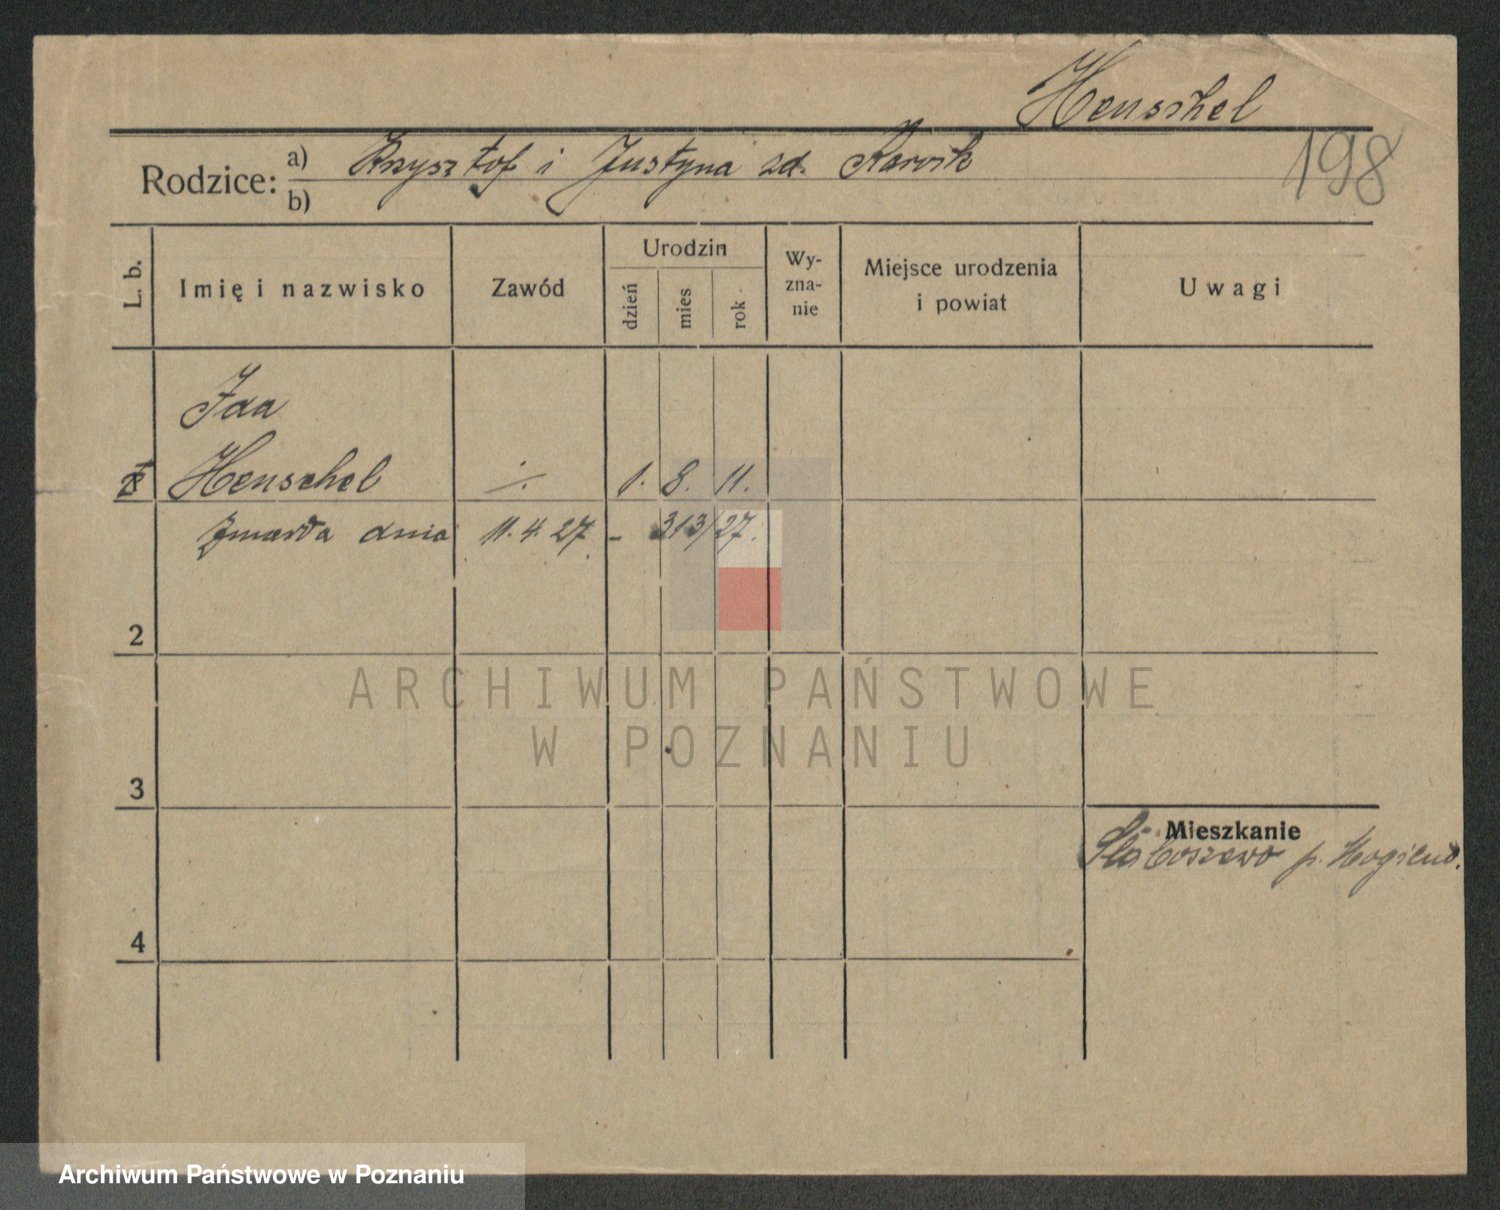 Henschel
198
Rodzice: a) Krzysztof i Justyna zd.
b)
L. b.
Imię i nazwisko
Zawód
Urodzin
dzień
mies
rok
Wy-
zna-
nie
Miejsce urodzenia
i powiat
Uwagi
Ida
Henschel ./. 1. 8. 11.
Zmarła dnia 11. 4. 27. - 313/27.
2
3
4
Mieszkanie
Słaboszewo p.
ARCHIWUM PAŃSTWOWE
W POZNANIU
Archiwum Państwowe w Poznaniu